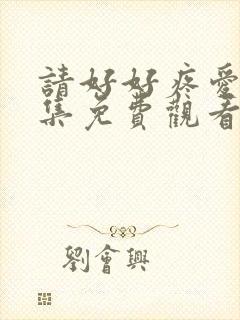 請好好疼愛
集免費觀看
劉會興